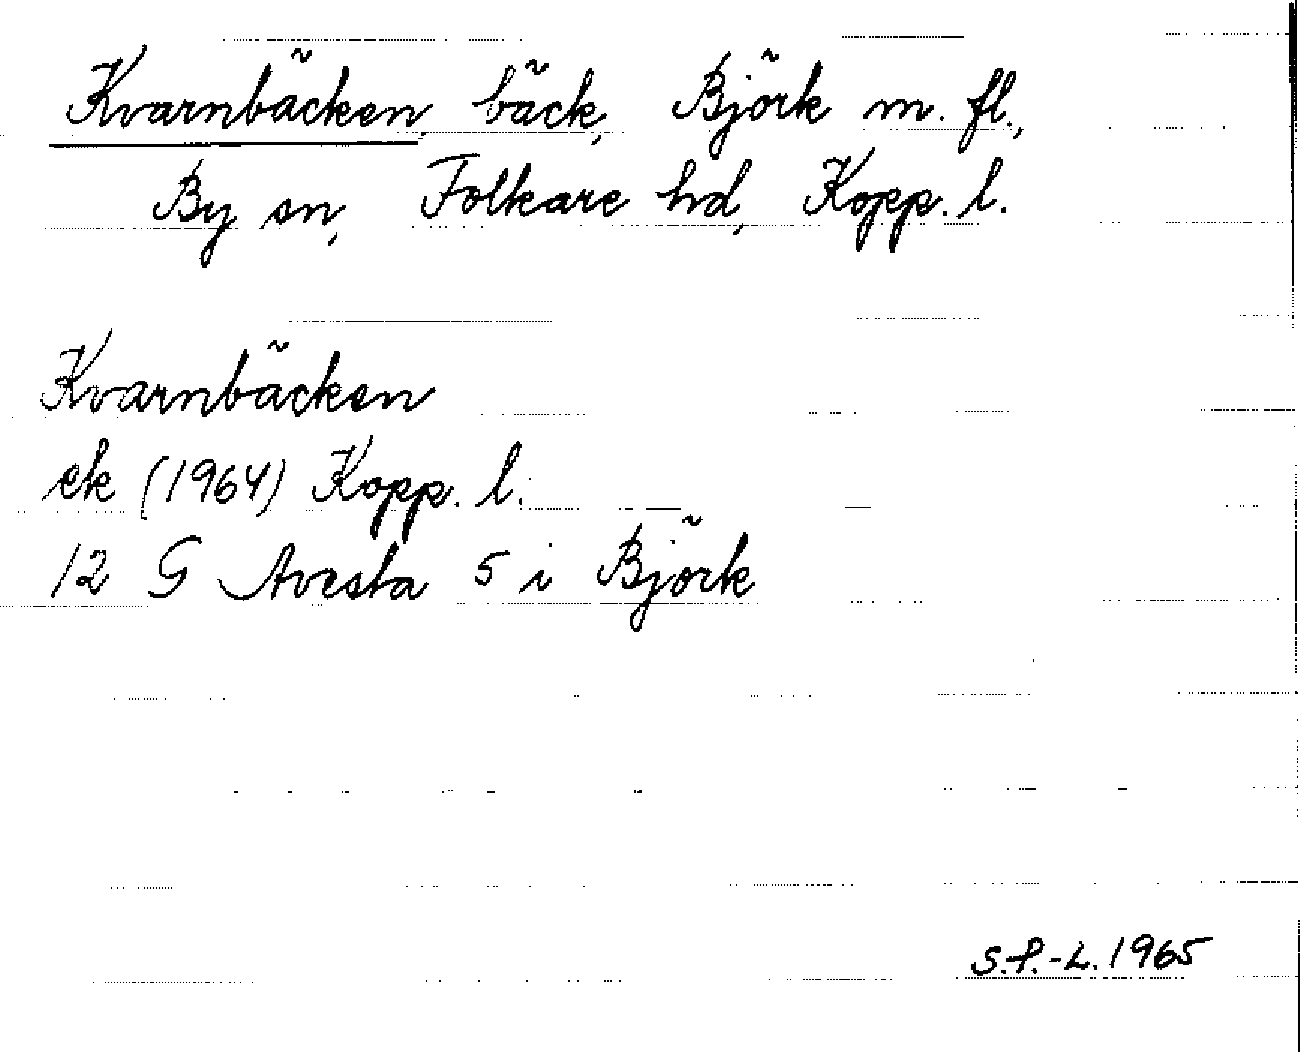 Kvarnbäcken, bäck, Björk m. fl.,
By sn, Folkare hd, Kopp. l.
Kvarnbäcken
ek (1964) Kopp. l.
12 G Avesta 5 i Björk
S.P.-L. 1965